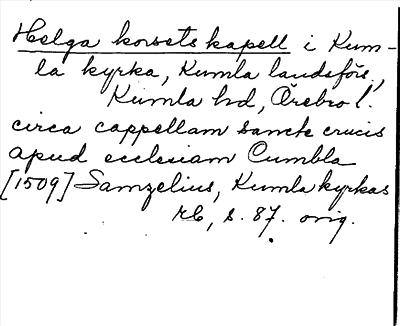 Helga korsets kapell i Kum-
la kyrka, Kumla landsförs.,
Kumla hd, Örebro l.
circa cappellam sancte crucis
apud ecclesiam Cumbla
[1509] Samzelius, Kumla kyrkas
rb, s. 87. orig.